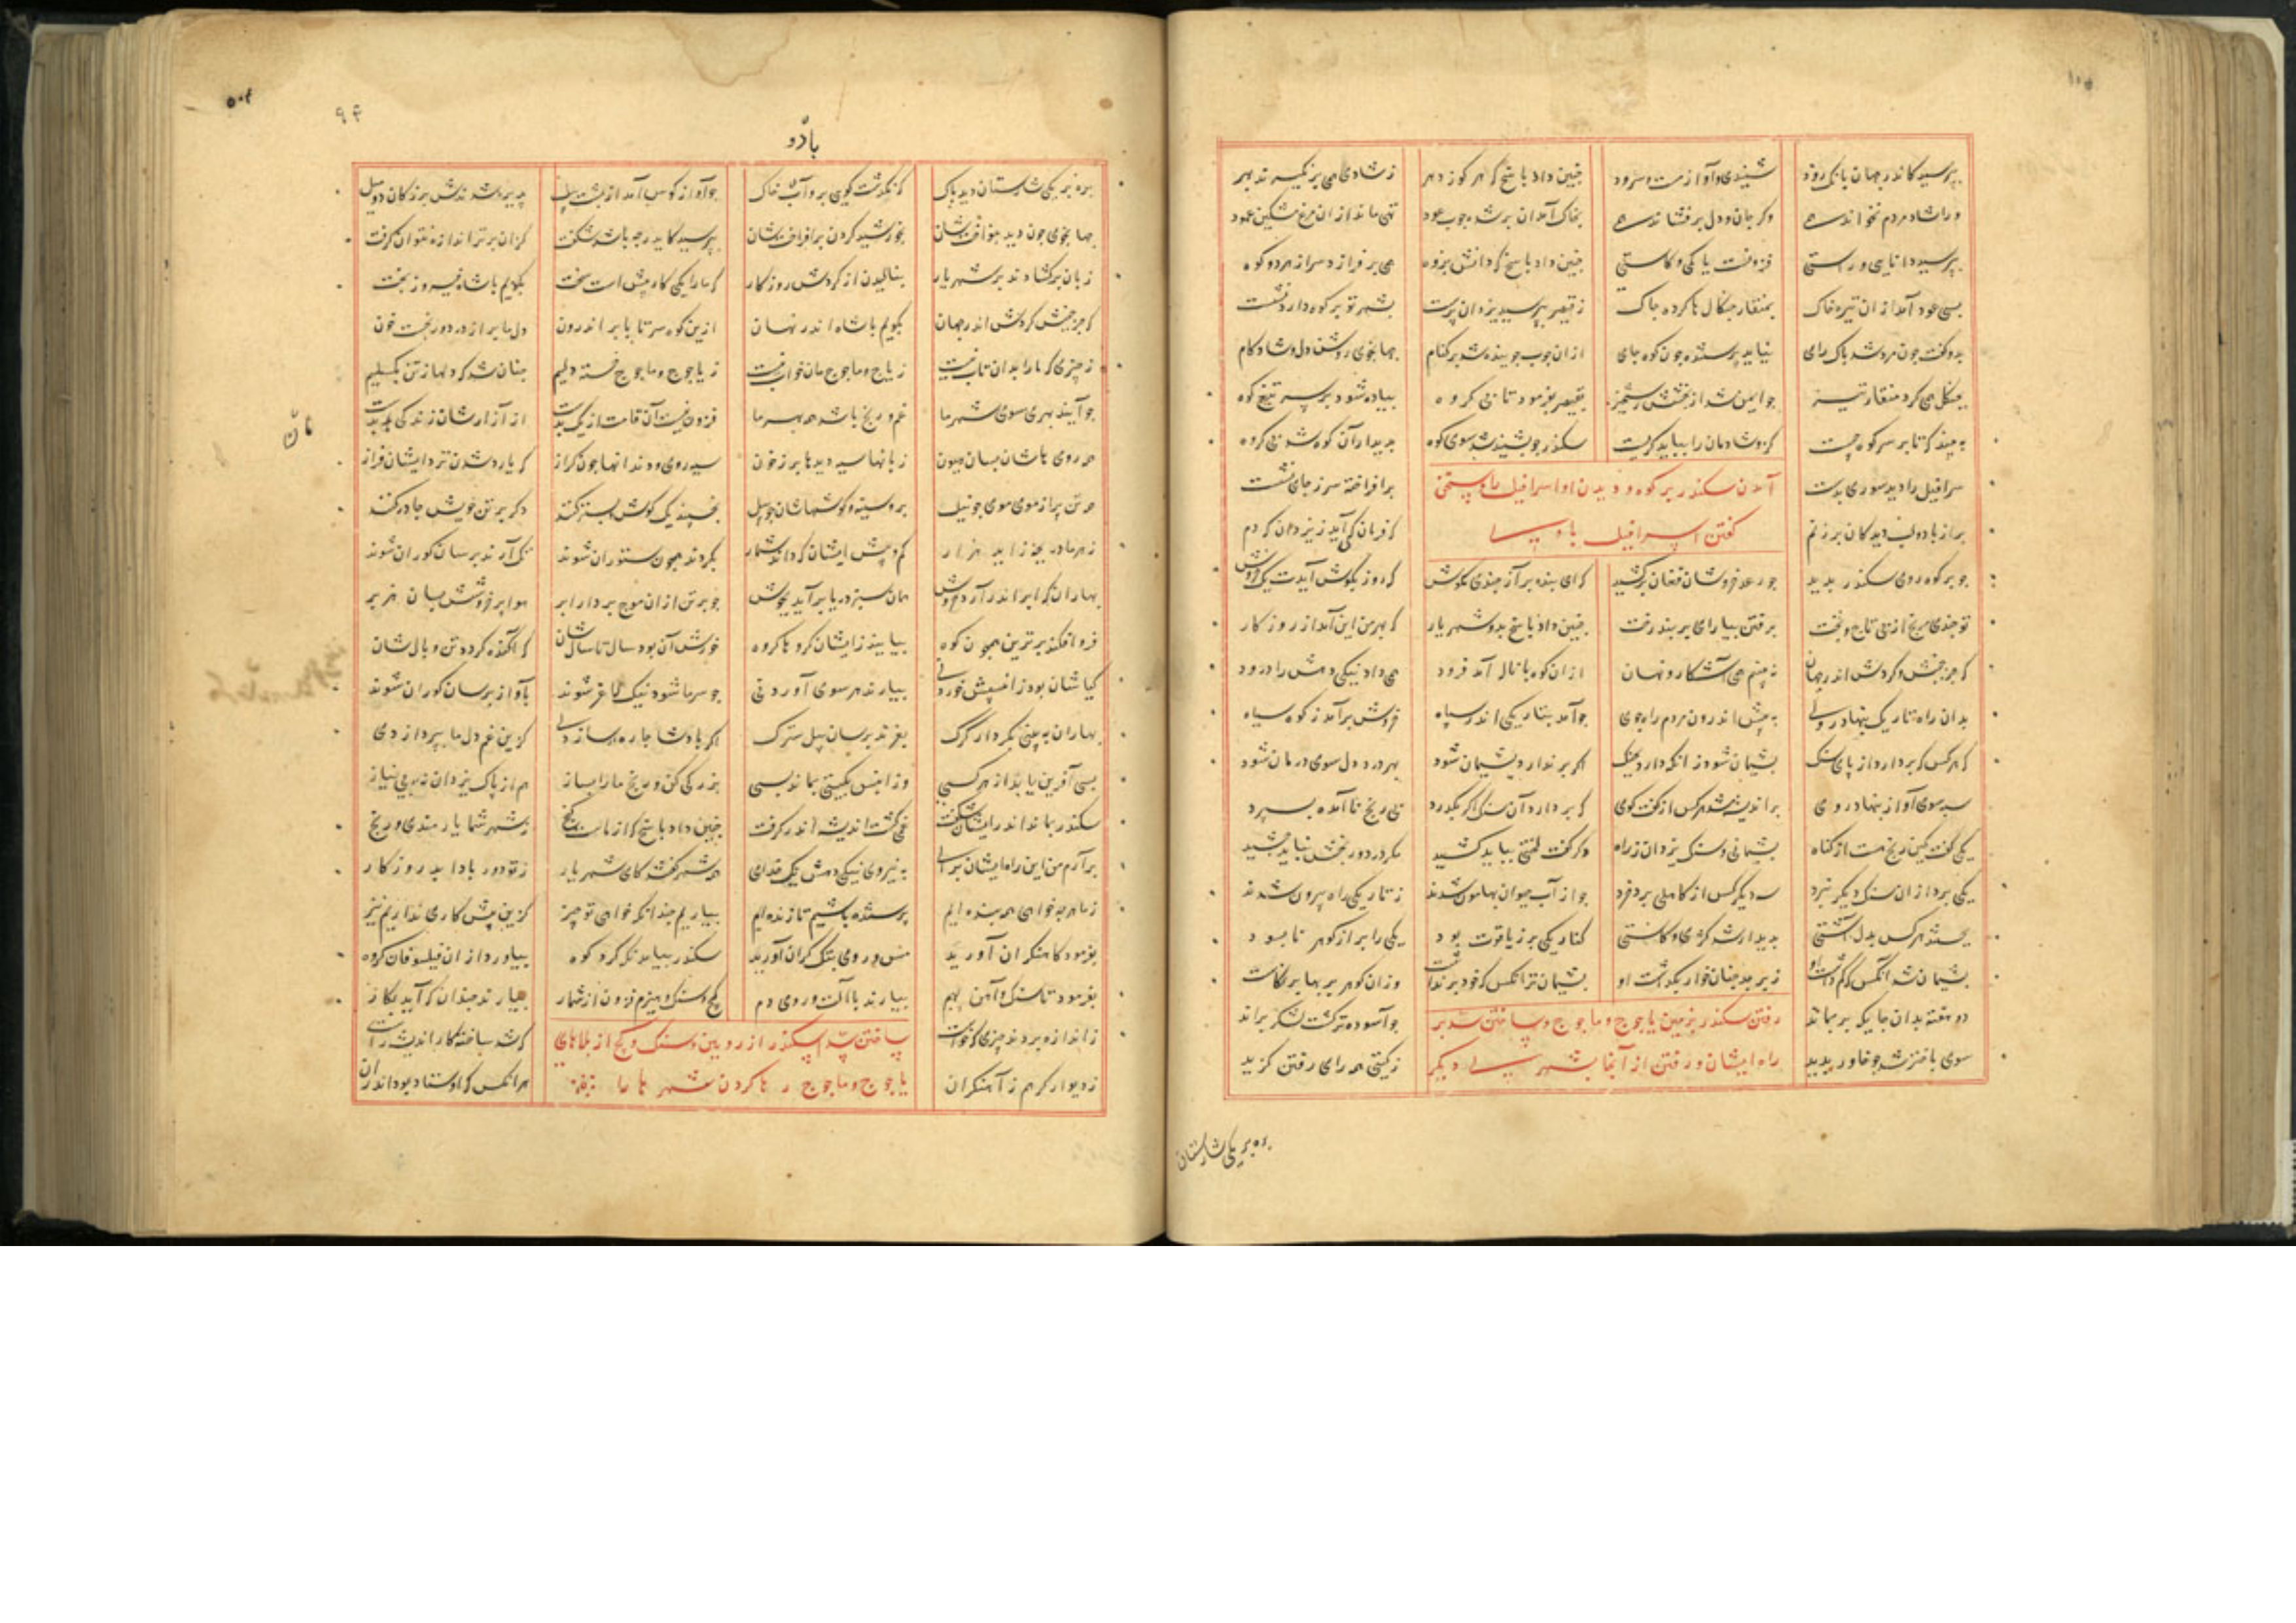 بپرسید کاندر جهان بانک رود شنیدی و آواز مست و سرود
چنین داد پاسخ که هر کو ز دهر ز شادی همی برنکیرند بهر
ورا شاد مردم نخواند همی وکر جان و دل برفشاند همی
بخاک آمد آن برشده چوب عود تهی ماند از آن مرغ مشکین عمود
بپرسید دانایی و راستی فزونست یا کمی و کاستی
چنین داد پاسخ که دانش پژوه همی سرفرازد سر از هر دو کروه
بسی عود آمد از آن تیره خاک بمنقار چنکال ها کرده چاک
ز قیصر بپرسید یزدان پرست بشهر تو بر کوه دارد نشست
بدو کفت چون مرد شد پاک رای نیابد پرستنده جز کوه جای
از آن چوب جوینده شد بر کنام جهانجوی روشن دل و شادکام
بچنکل همی کرد منقار تیز چو ایمن شد از بخشش رستخیز
بقیصر بفرمود تا بی کروه پیاده شود بر سر تیغ کوه
به بیند که تا بر سر کوه چیست کزو شادمان را بباید کریست
سکندر چو بشنید شد سوی کوه بدیدار آن کوه شد بی کروه
سرافیل را دید صوری بدست برافراخته سر ز جای نشست
آمدن سکندر بر کوه و دیدن او اسرافیل را و سخن
پر از باد و لب دیدکان پر ز نم که فرمان کی آید ز یزدان که دم
کفتن اسرافیل با وی
چو بر کوه روی سکندر بدید چو رعد خروشان فغان برکشید
که ای بنده بر آز چندی مکوش که روزی بکوش آیدت یک خروش
تو چندین مرنج از پی تاج و تخت برفتن بیارای بر بند رخت
چنین داد پاسخ بدو شهریار که بهر من این آمد از روزکار
که جز جنبش و کردش اندر جهان نه بینم همی آشکار و نهان
از آن کوه با ناله آمد فرود همی داد نیکی دهش را درود
بدان راه تاریک بنهاد روی به پیش اندرون مردم راه جوی
چو آمد بتاریکی اندر سپاه خروشی برآمد ز کوه سیاه
که هر کس که بردارد از پای سنک پشیمان شود ز آنکه دارد بچنک
اکر برندارد پشیمان شود بهر درد دل سوی درمان شود
سپه سوی آواز بنهاد روی بر اندیشه شد هر کس از کفت کوی
که بردارد آن سنک اکر بکذرد پی رنج ناآمده بسپرد
یکی کفت کین رنج هست از کناه پشیمانی و سنک یزدان ز راه
دکر کفت لختی بباید کشید مکر درد و رنجش نباید چشید
یکی برد از آن سنک دیکر نبرد سه دیکر کس از کاهلی برد خرد
چو از آب حیوان بهامون شدند ز تاریکی راه بیرون شدند
بجستند هر کس بدل آشتی بدیدار شد کژی و کاستی
کنار یکی پر ز یاقوت بود یکی را پر از کوهر نابسود
پشیمان شد آنکس که کم داشت او زبرجد چنان خوار بکذاشت او
پشیمان‌تر آنکس که خود برنداشت وزان کوهر پربها برنکاشت
دو هفته بدان جایکه بر بماند چو آسوده تر کشت لشکر براند
رفتن سکندر بزمین یاجوج و ماجوج و ساختن سد بر
سوی باختر شد چو خاور بدید ز کیتی همه رای رفتن کزید
راه ایشان و رفتن از آنجا بشهری دیکر
بره بر یکی شارستان
با دو
بره بر یکی شارستان دید پاک که نکذشت کویی برو آب خاک
چو آواز کوس آمد از پشت پیل پذیره شدندش بزرکان دو میل
جهانجوی چون دید بنواختشان بخورشید کردن برافراختشان
بپرسید کایدر چه باشد شکفت کزان برتر اندازه نتوان کرفت
زبان برکشادند بر شهریار بنالیدن از کردش روزکار
که ما را یکی کار پیش است سخت بکویم با شاه پیروز بخت
که جز جنبش کردش اندر جهان بکویم با شاه اندر نهان
ازین کوه سر تا بابر اندرون دل ما پر از درد و رنجست خون
ز چیزی که ما را بدان تاب نیست ز یاجوج و ماجوج مان خواب نیست
ز یاجوج و ماجوج خسته دلیم چنان شد که دلها ز تن بکسلیم
چو آیند بهری سوی شهر ما غم و رنج باشد همه بهر ما
همه روی هاشان بسان هیون زبانها سیه دیدها پر ز خون
سیه روی و دندانها چون کراز که یارد شدن نزد ایشان فراز
همه تن پر از موی موی چو نیل بر و سینه و کوشهاشان چو پیل
بخسپند یک کوش بستر کنند دکر بر تن خویش چادر کنند
ز هر ماده بچه زاید هزار کم و بیش ایشان که داند شمار
بکردند همچون ستوران شوند تک آرند بر سان کوران شوند
بهاران که ابر اندر آرد خروش همان سبز دریا برآید بجوش
چو برتن از آن موج بردارد ابر هوا برخروشد بسان هزبر
فرو افکند برترین همچون کوه بیایند زایشان کروها کروه
خورش آن بود سال تا سال شان که آکنده کردد تن و یال شان
کیا شان بود زان سپس خوردنی بیارند هر سوی آوردنی
چو سرما شود نیک لاغر شوند بآواز بر سان کوران شوند
بهاران به بینی بکردار کرک بغرند بر سان پیل سترک
اکر پادشا چاره سازدی کزین غم دل ما بپردازدی
بسی آفرین یابد از هر کسی وز آن پس بکیتی بماند بسی
بزرکی کن و رنج ما را بساز هم از پاک یزدان نه ای بی نیاز
سکندر بماند اندر ایشان شکفت غمی کشت اندیشه اندر کرفت
چنین داد پاسخ که از ماست کنج ز شهر شما یارمندی و رنج
برآرم من این راه ایشان برای به نیروی نیکی دهش یک خدای
همه شهر کفتند کای شهریار ز تو دور بادا بد روزکار
ز ما هر چه خواهی همه بنده ایم پرستنده باشیم تا زنده ایم
بیاریم چندانکه خواهی تو چیز کزین بیش کاری نداریم نیز
بفرمود کاهنکران آورید مس و روی پتک کران آورید
سکندر بیامد نکه کرد کوه بیاورد از آن فیلسوفان کروه
بفرمود تا سنک و آهن بهم بیارند با آلت و روی دم
کچ و سنک و هیزم فزون از شمار بیارند چندان که آید بکار
ز اندازه بردند چیزی که خواست که شد ساخته کار اندیشه راست
ساختن سد اسکندر از رویین و سنک و کچ از بلاهای
ز دیوار کر هم ز آهنکران هر آنکس که استاد بود اندران
یاجوج و ماجوج رها کردن شهر ها را